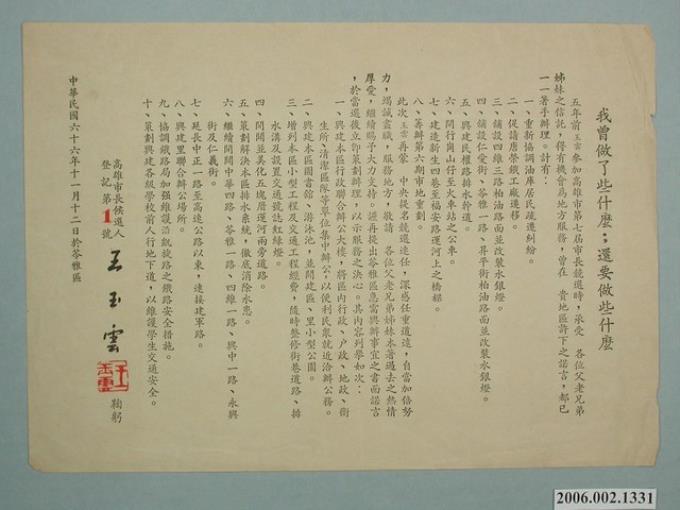 我曾做了些什麼；還要做些什麼
五年前玉雲參加高雄市第七屆市長競選時，承受　各位父老兄弟
姊妹之信託，得有機會為地方服務，曾在　貴地區許下之諾言，都已
一一著手辦理。計有：
一、重新協調油庫居民疏遷糾紛。
二、促請唐榮鐵工廠遷移。
三、舖設四維三路柏油路面並改裝水銀燈。
四、舖設仁愛街、苓雅一路、昇平街柏油路面並改裝水銀燈。
五、興建民權路排水幹道。
六、開行崗山仔至火車站之公車。
七、建造新生四巷至福安路運河上之橋樑。
八、籌辦第六期市地重劃。
此次玉雲再蒙　中央提名競選連任，深感任重道遠，自當加倍努
力，竭誠盡職，服務地方，敬請　各位父老兄弟姊妹本著過去之熱情
厚愛，繼續賜予大力支持。謹再提出苓雅區應當興辦事宜之書面諾言
，於當選後立即策劃辦理，以示服務之決心。其內容列舉如次：
一、興建本區行政聯合辦公大樓，將區內行政、户政、地政、衛
生所、清潔區隊等單位集中辦公，以便利民衆就近洽辦公務。
二、興建本區圖書館、游泳池，並開建區、里小型公園。
三、增列本區小型工程及交通工程經費，隨時整修街巷道路、排
水溝及設置交通號誌紅綠燈。
四、開闢並美化五塊厝運河兩旁道路。
五、策劃解決本區排水系統，徹底消除水患。
六、繼續開闢中華四路、苓雅一路、四維一路、興中一路、永興
街及仁義街。
七、延長中正一路至高速公路以東，連接建軍路。
八、興建里聯合辦公場所。
九、協調鐵路局加强維護沿凱旋路之鐵路安全措施。
十、策劃興建各級學校前人行地下道，以維護學生交通安全。
高雄市長候選人
登記第1號
王玉雲
王玉雲
鞠躬
中華民國六十六年十一月十二日於苓雅區
2006.002.1331